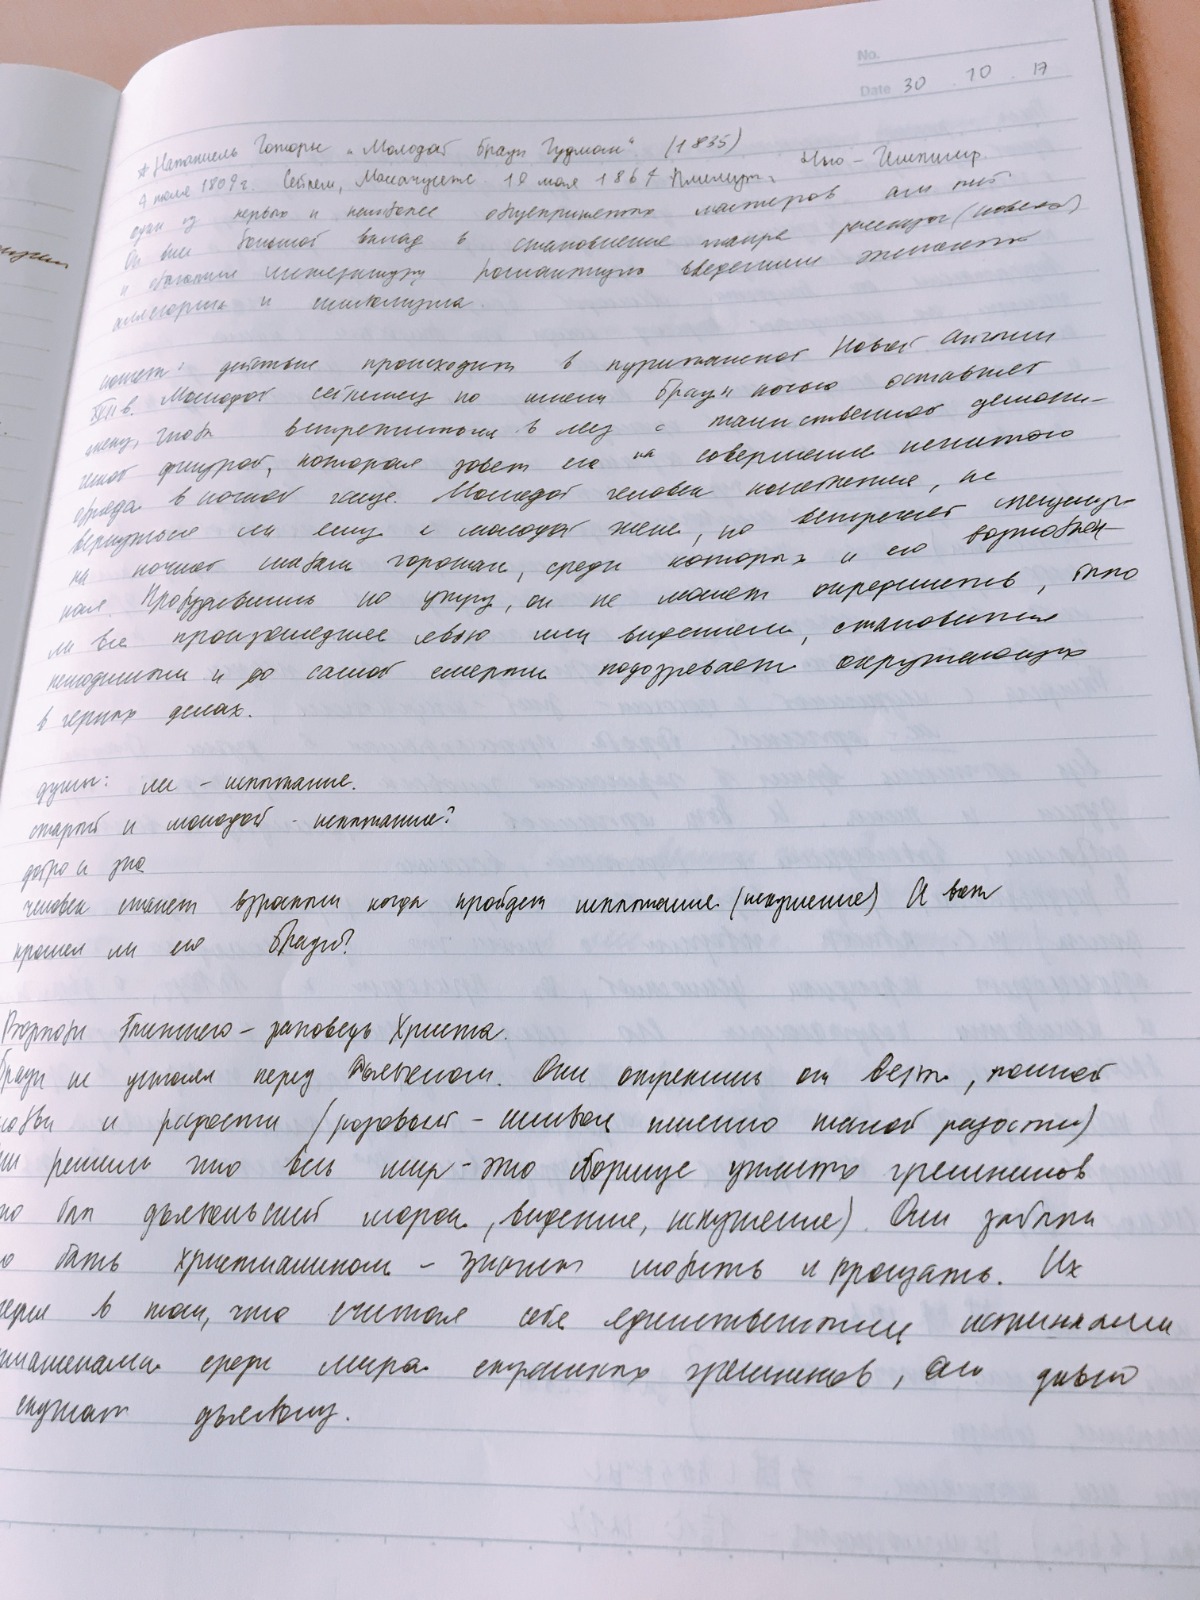 No.
Date 30 . 10 . 17
* Натаниель Готорн „Молодой Браун Гудман" (1835)
4 июля 1804г. Сейлем, Массачусетс. 19 мая 1864 Плимут, Нью-Гемпшир.
один из первых и наиболее общепринятых мастеров
Он внес большой вклад в становление жанра рассказа (новелл)
и обогатил литературу романтизма введением элементов
аллегории и символизма.
сюжет: действие происходит в пуританской Новой Англии
XVII в. Молодой сейлемец по имени Браун ночью оставляет
жену, чтобы встретиться в лесу с таинственной демони-
ческой фигурой, которая зовет его на совершение нечистого
обряда в ночной чаще. Молодой человек колеблется, не
вернуться ли ему к молодой жене, но встречает спешащих
на ночной шабаш горожан, среди которых и его возлюблен-
ная. Пробудившись по утру, он не может определить, было
ли все произошедшее явью или видением, становится
нелюдимым и до самой смерти подозревает окружающих
в черных делах.
думы: лес - испытание.
старый и молодой - испытание?
добро и зло
человек станет взрослым когда пройдет испытание (искушение) А вот
прошел ли его Браун?
Возлюби ближнего - заповедь Христа.
Браун не устоял перед Дьяволом. Они отреклись от Веры, полной
любви и радости (розовый - символ именно такой радости)
они решили что весь мир - это сборище ужасных грешников
(но был дьявольский морок, видение, искушение). Они забыли
что быть христианином - значит любить и прощать. Их
в том, что считая себя единственными истинными
среди мира страшных грешников, они давно
служат дьяволу.